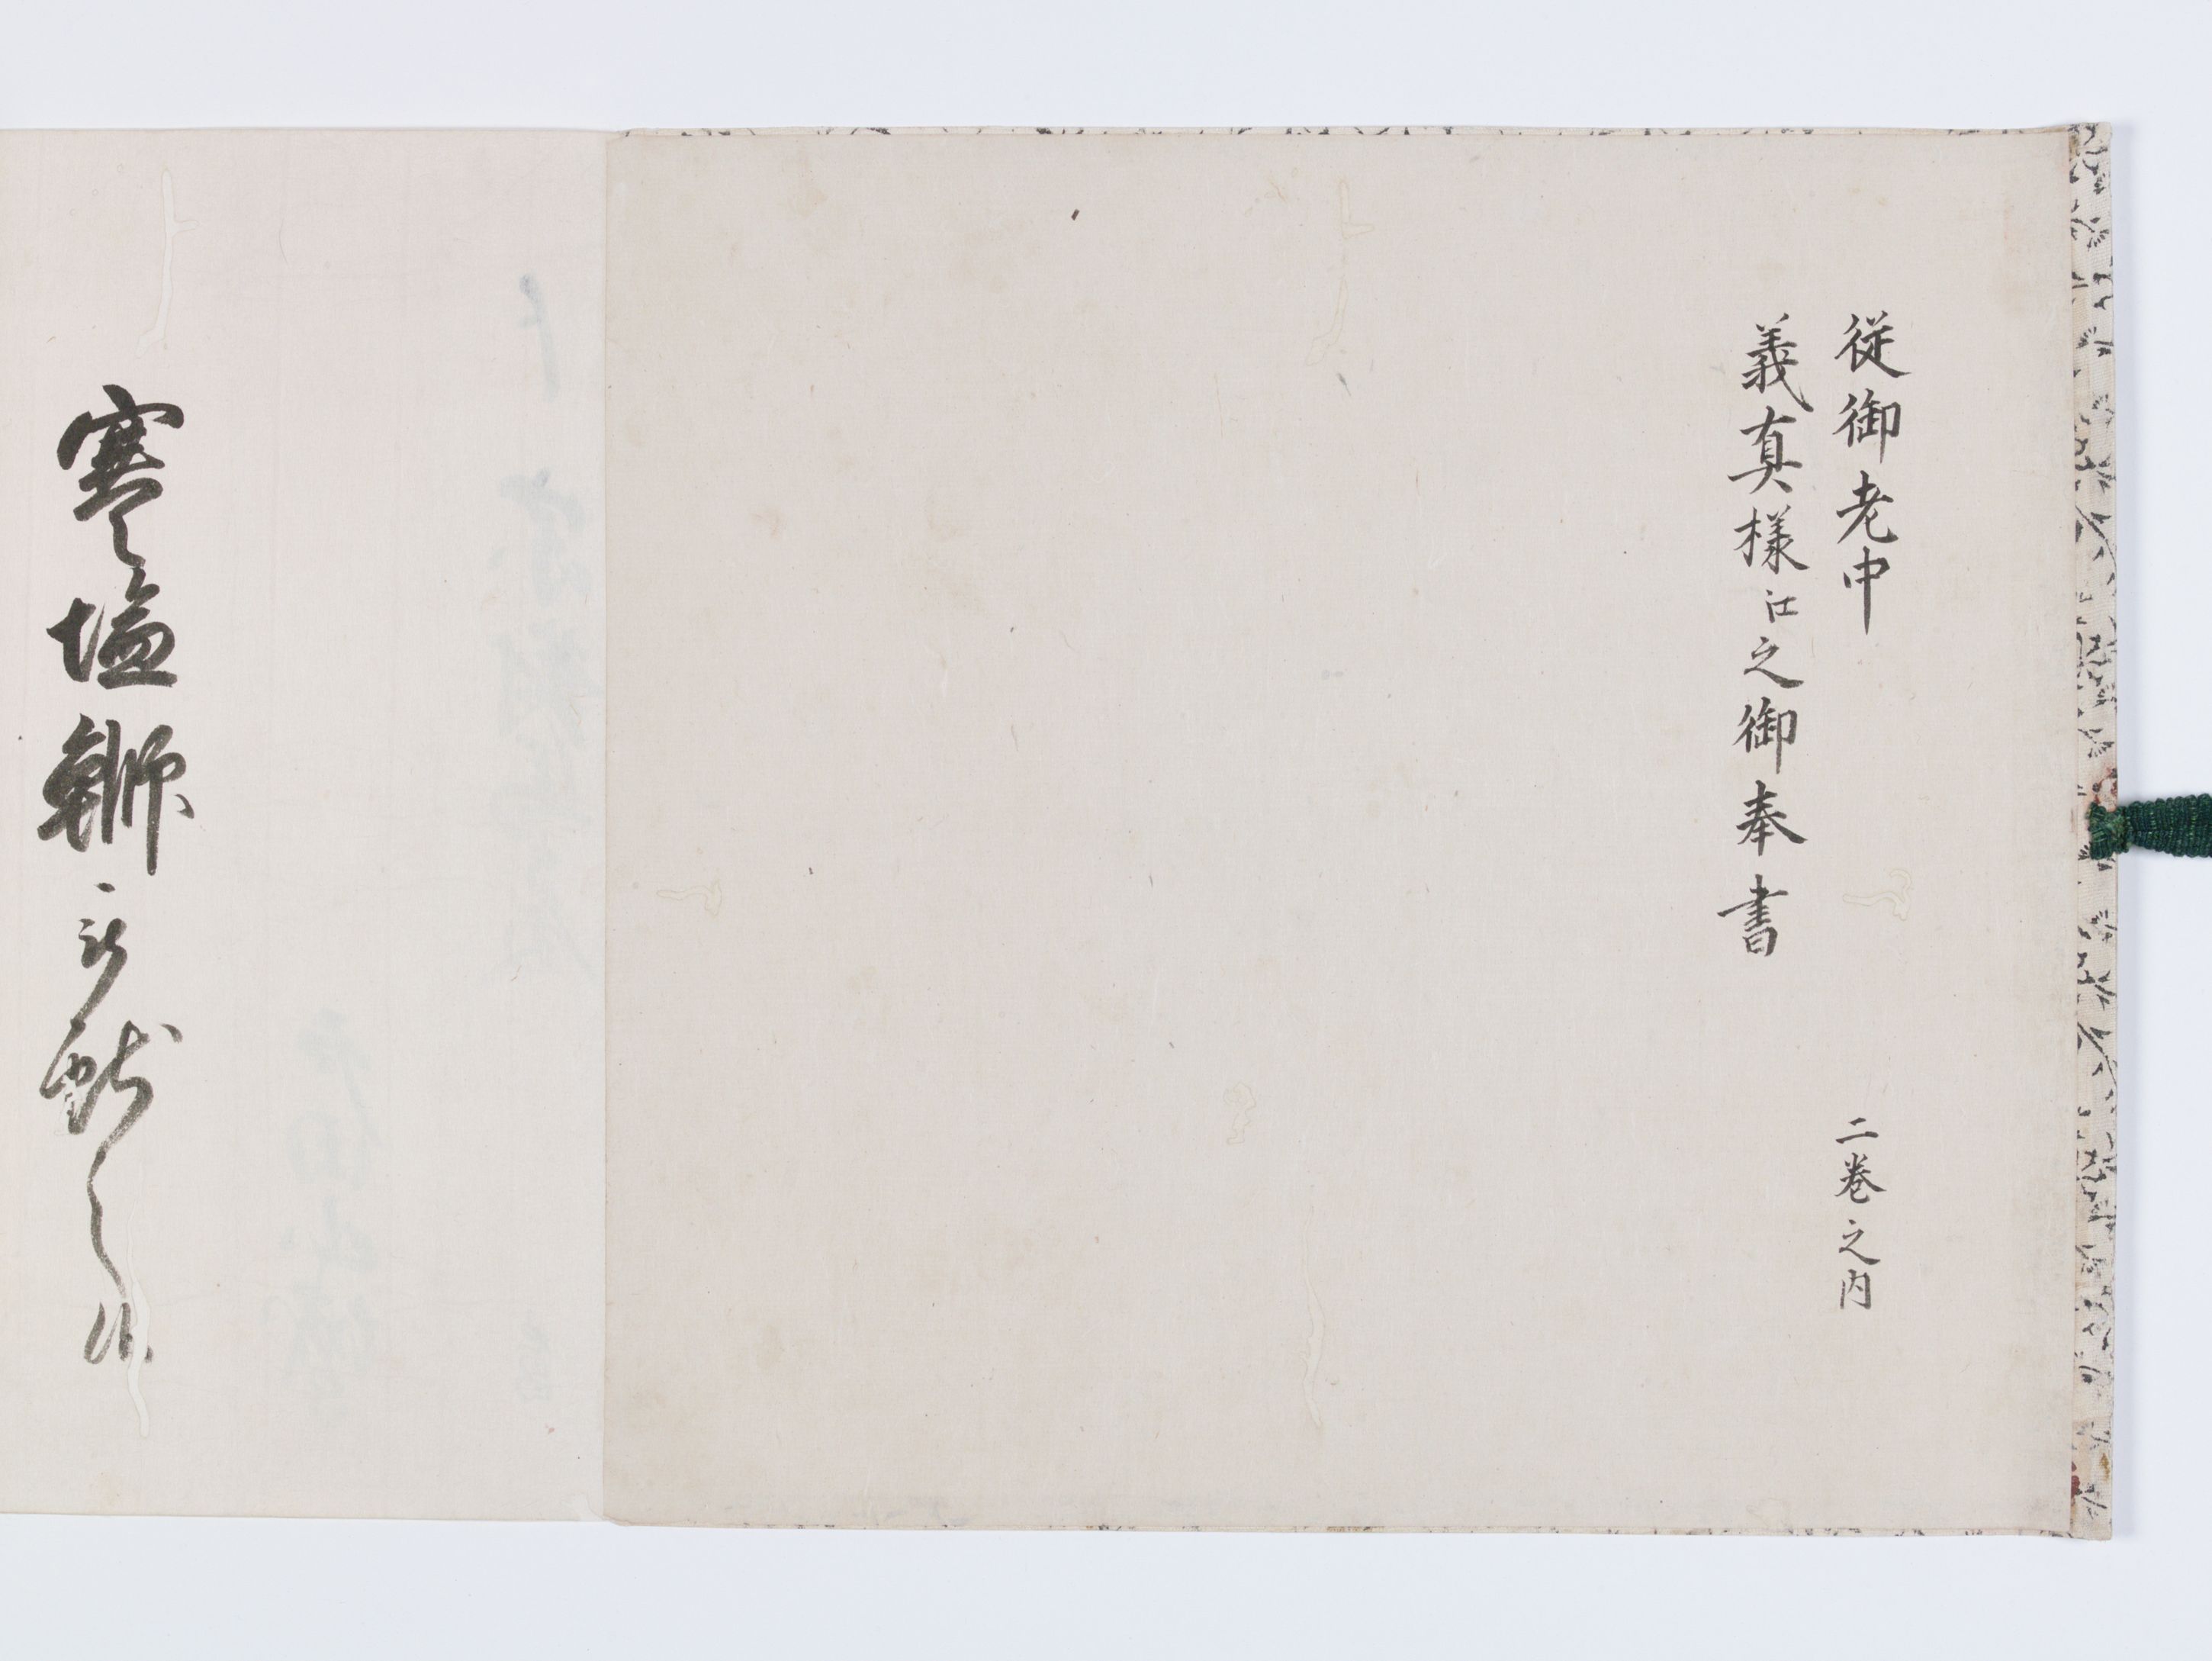 従御老中
二巻之内
義真様江之御奉書
寒塩鯽